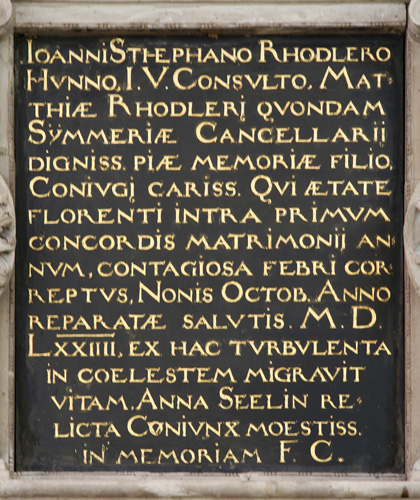 IOANNI STHEPHANO RHODLERO
HVNNO, I. V. CONSVLTO, MAT-
THIÆ RHODLERJ QVONDAM
SŸMMERIÆ CANCELLARIJ
DIGNISS. PIÆ MEMORIÆ FILIO,
CONIVGJ CARISS. QVI ÆTATE
FLORENTI INTRA PRIMVM
CONCORDIS MATRIMONIJ AN-
NVM, CONTAGIOSA FEBRI COR-
REPTVS, NONIS OCTOB. ANNO
REPARATÆ SALVTIS. M. D.
LXXIIII, EX HAC TVRBVLENTA
IN COELESTEM MIGRAVIT
VITAM. ANNA SEELIN RE-
LICTA CONIVNX MOESTISS.
IN MEMORIAM F. C.